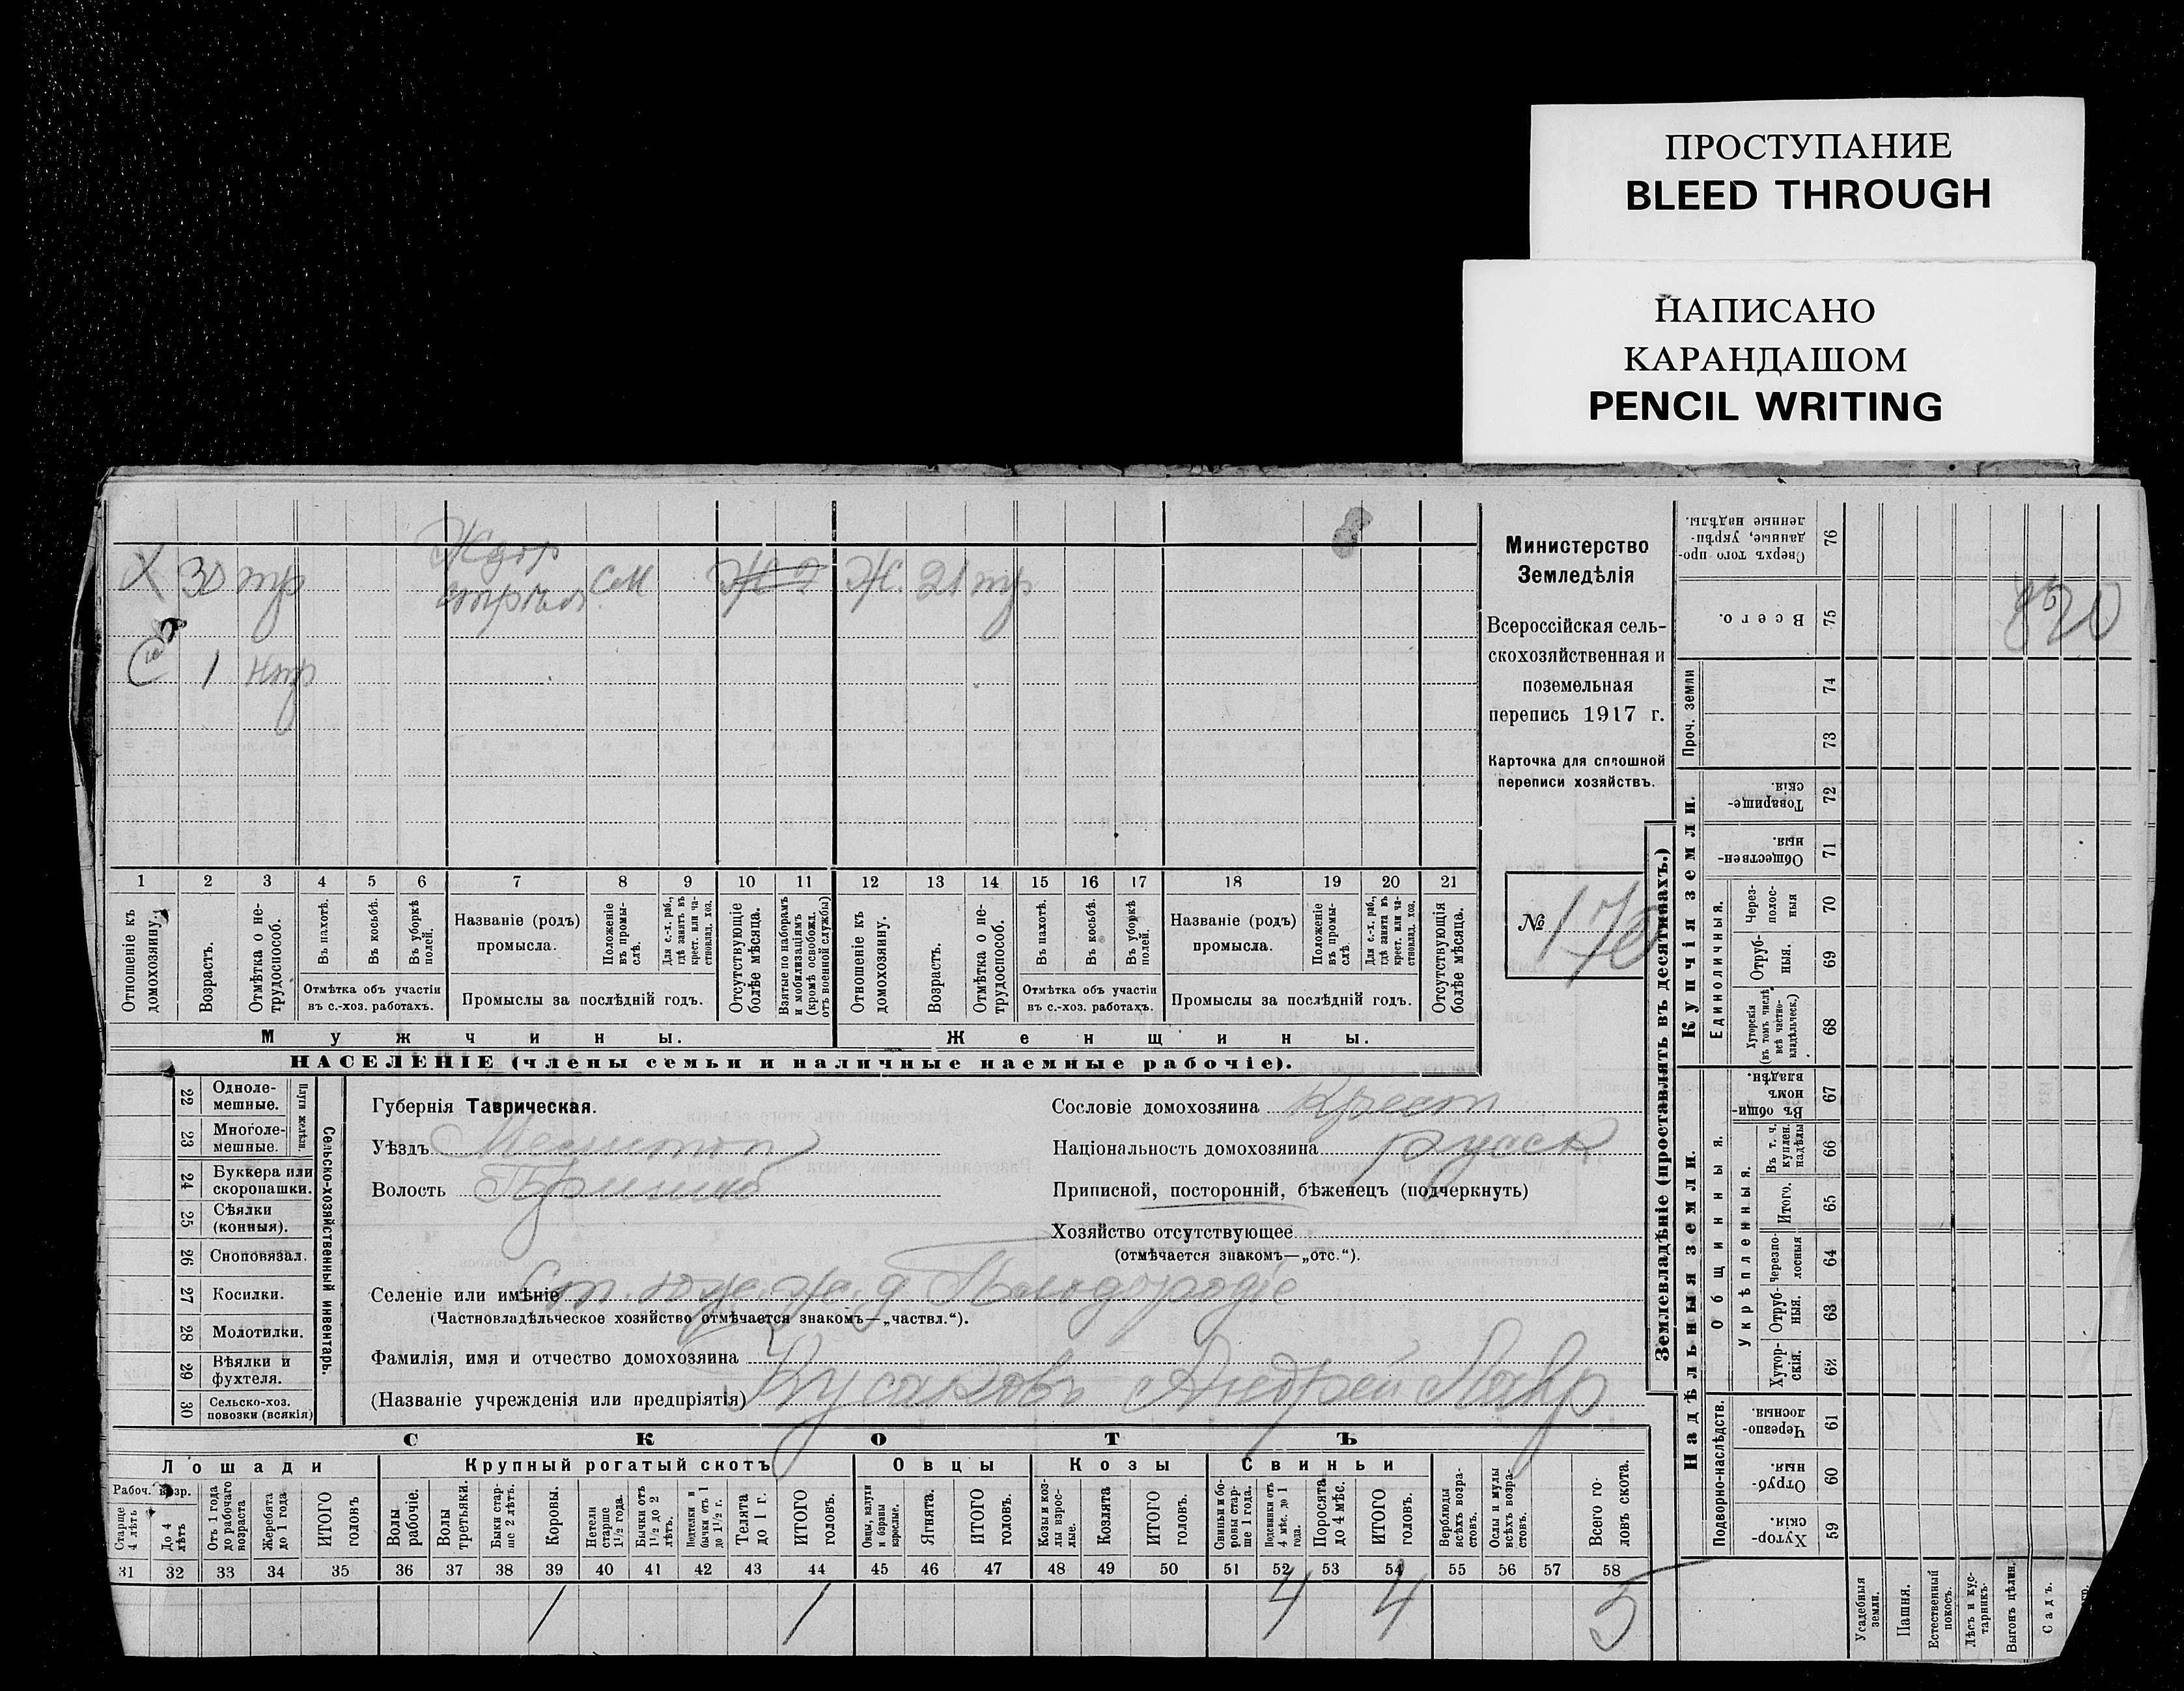 ПРОСТУПАНИЕ
BLEED THROUGH
НАПИСАНО
КАРАНДАШОМ
PENCIL WRITING
Х 30 тр См Ж. 21 тр
С 1 нтр
1 2 3 4 5 6 7 8 9 10 11 12 13 14 15 16 17 18 19 20 21
Отношеніе къ домохозяину.
Возрастъ.
Отмѣтка о не-трудоспособ.
Въ пахотѣ.
Въ косьбѣ.
Въ уборкѣ полей.
Отмѣтка объ участіи
въ с.-хоз. работахъ.
Названіе (родъ)
промысла.
Положеніе въ промы-слѣ.
Для с.-х. раб., гдѣ занятъ въ крест. или ча-стновлад. хоз.
Промыслы за послѣдній годъ.
Отсутствующіе болѣе мѣсяца.
Взятые по наборамъ и мобилизаціямъ (кромѣ освобожд. отъ военной службы)
Отношеніе къ домохозяину.
Возрастъ.
Отмѣтка о не-трудоспособ.
Въ пахотѣ.
Въ косьбѣ.
Въ уборкѣ полей.
Отмѣтка объ участіи
въ с.-хоз. работахъ.
Названіе (родъ)
промысла.
Положеніе въ промы-слѣ.
Для с.-х. раб., гдѣ занята въ крест. или ча-стновлад. хоз.
Промыслы за послѣдній годъ.
Отсутствующія болѣе мѣсяца.
Мужчины.
Женщины.
НАСЕЛЕНІЕ (члены семьи и наличные наемные рабочіе).
Министерство
Земледѣлія
Всероссійская сель-
скохозяйственная и
поземельная
перепись 1917 г.
Карточка для сплошной
переписи хозяйствъ.
№ 178
22 Одноле-
мешные.
23 Многоле-
мешные.
Плуги желѣзн.
24 Буккера или
скоропашки.
25 Сѣялки
(конныя).
26 Сноповязал.
27 Косилки.
28 Молотилки.
29 Вѣялки и
фухтеля.
30 Сельско-хоз.
повозки (всякія)
Сельско-хозяйственный инвентарь.
Губернія Таврическая.
Уѣздъ Мелитоп
Волость
Сословіе домохозяина Крест
Національность домохозяина русск
Приписной, посторонній, бѣженецъ (подчеркнуть)
Хозяйство отсутствующее
(отмѣчается знакомъ—„отс.“).
Селеніе или имѣніе Ст. юж. ж. д Плодородіе
(Частновладѣльческое хозяйство отмѣчается знакомъ—„частвл.“).
Фамилія, имя и отчество домохозяина
(Названіе учрежденія или предпріятія) Кусаковъ Андрей Лавр
СКОТЪ
Лошади Крупный рогатый скотъ Овцы Козы Свиньи
Рабоч. возр.
Старше 4 лѣтъ
До 4 лѣтъ
Отъ 1 года до рабочаго возраста
Жеребята до 1 года
ИТОГО головъ
Волы рабочіе.
Волы третьяки.
Быки стар-ше 2 лѣтъ.
Коровы.
Нетели старше 1½ года.
Бычки отъ 1½ до 2 лѣтъ.
Подтелки и бычки отъ 1 до 1½ г.
Телята до 1 г.
ИТОГО головъ.
Овцы, валухи и бараны взрослые.
Ягнята.
ИТОГО головъ.
Козы и коз-лы взрос-лые.
Козлята
ИТОГО головъ.
Свиньи и бо-ровы стар-ше 1 года.
Подсвинки отъ 4 мѣс. до 1 года.
Поросята до 4 мѣс.
ИТОГО головъ.
Верблюды всѣхъ возра-стовъ.
Ослы и мулы всѣхъ возра-стовъ.
Всего го-ловъ скота.
31 32 33 34 35 36 37 38 39 40 41 42 43 44 45 46 47 48 49 50 51 52 53 54 55 56 57 58
1 1 4 4 5
Землевладѣніе (проставлять въ десятинахъ.)
Купчія земли.
Надѣльныя земли.
Сверхъ того про-данные, укрѣп-ленные надѣлы. 76
Всего. 75
820
Проч. земли 74
73
Товарище-скія. 72
Обществен-ныя. 71
Единоличныя.
Через-полос-ныя 70
Отруб-ныя. 69
Хуторскія (въ томъ числѣ всѣ частно-владѣльческ.) 68
Общинныя.
Въ общи-номъ владѣн. 67
Укрѣпленныя.
Въ т. ч. куплен. надѣлы 66
Итого. 65
Черезпо-лосныя 64
Отруб-ныя. 63
Хутор-скія. 62
Подворно-наслѣдств.
Черезпо-лосныя 61
Отруб-ныя. 60
Хутор-скія. 59
Усадебныя земли.
Пашня.
Естественный покосъ.
Лѣсъ и кус-тарникъ.
Выгонъ цѣлин.
Садъ.